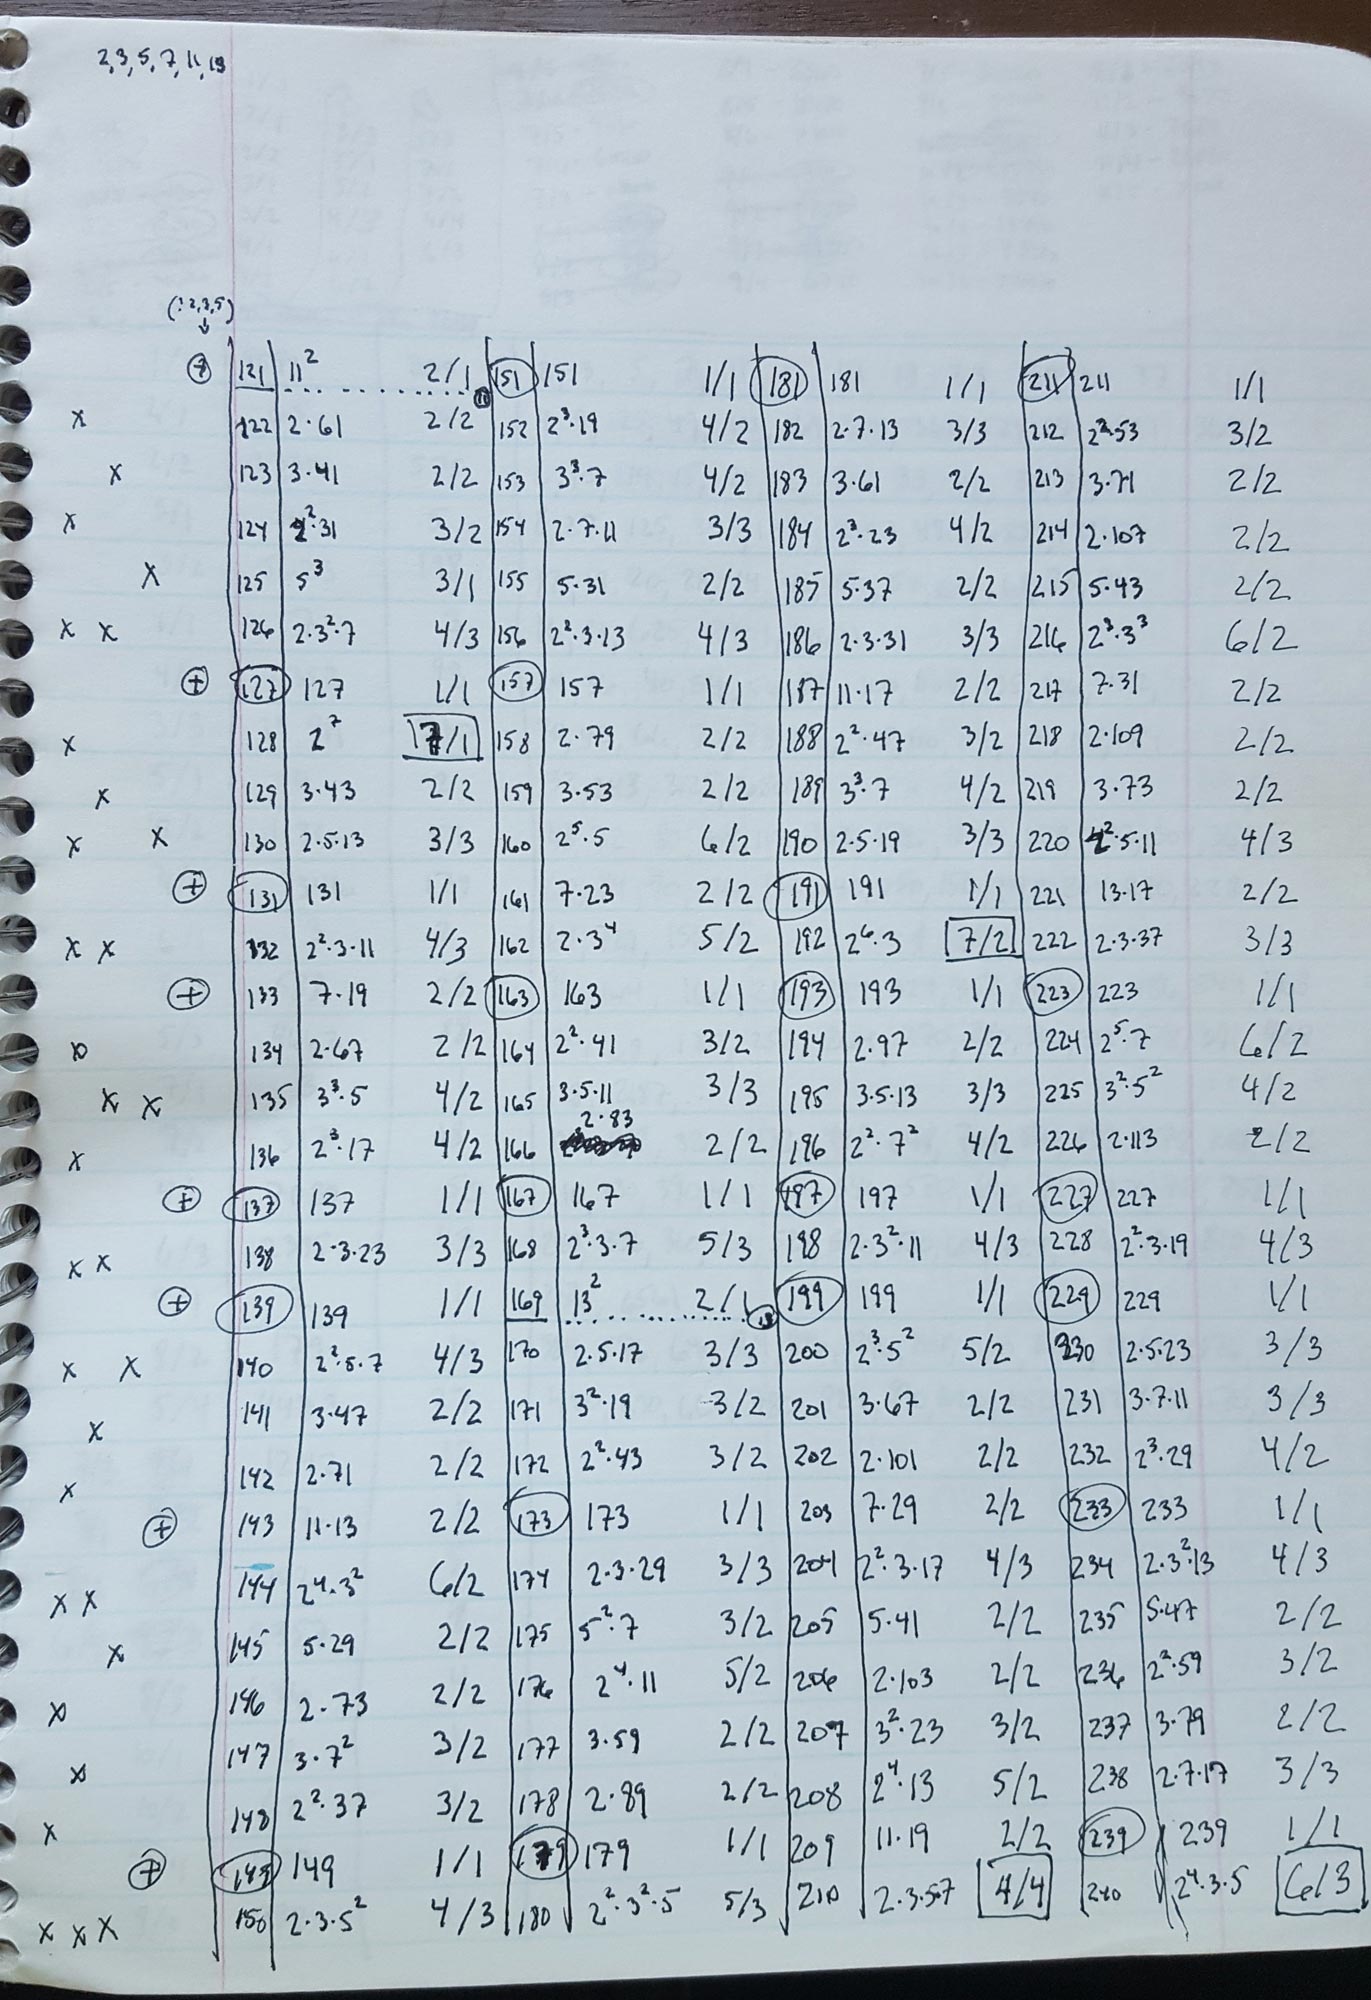 2,3,5,7,11,13
(2,3,5)
↓
+ 121 11² 2/1 151 151 1/1 181 181 1/1 211 211 1/1
11
x 122 2·61 2/2 152 2³·19 4/2 182 2·7·13 3/3 212 2²·53 3/2
x 123 3·41 2/2 153 3³·7 4/2 183 3·61 2/2 213 3·71 2/2
x 124 2²·31 3/2 154 2·7·11 3/3 184 2³·23 4/2 214 2·107 2/2
x 125 5³ 3/1 155 5·31 2/2 185 5·37 2/2 215 5·43 2/2
x x 126 2·3²·7 4/3 156 2²·3·13 4/3 186 2·3·31 3/3 216 2³·3³ 6/2
+ 127 127 1/1 157 157 1/1 187 11·17 2/2 217 7·31 2/2
x 128 2⁷ 7/1 158 2·79 2/2 188 2²·47 3/2 218 2·109 2/2
x 129 3·43 2/2 159 3·53 2/2 189 3³·7 4/2 219 3·73 2/2
x x 130 2·5·13 3/3 160 2⁵·5 6/2 190 2·5·19 3/3 220 2²·5·11 4/3
+ 131 131 1/1 161 7·23 2/2 191 191 1/1 221 13·17 2/2
x x 132 2²·3·11 4/3 162 2·3⁴ 5/2 192 2⁶·3 7/2 222 2·3·37 3/3
+ 133 7·19 2/2 163 163 1/1 193 193 1/1 223 223 1/1
x 134 2·67 2/2 164 2²·41 3/2 194 2·97 2/2 224 2⁵·7 6/2
x x 135 3³·5 4/2 165 3·5·11 3/3 195 3·5·13 3/3 225 3²·5² 4/2
x 136 2³·17 4/2 166 2·83 2/2 196 2²·7² 4/2 226 2·113 2/2
+ 137 137 1/1 167 167 1/1 197 197 1/1 227 227 1/1
x x 138 2·3·23 3/3 168 2³·3·7 5/3 198 2·3²·11 4/3 228 2²·3·19 4/3
+ 139 139 1/1 169 13² 2/1 199 199 1/1 229 229 1/1
13
x x 140 2²·5·7 4/3 170 2·5·17 3/3 200 2³·5² 5/2 230 2·5·23 3/3
x 141 3·47 2/2 171 3²·19 3/2 201 3·67 2/2 231 3·7·11 3/3
x 142 2·71 2/2 172 2²·43 3/2 202 2·101 2/2 232 2³·29 4/2
+ 143 11·13 2/2 173 173 1/1 203 7·29 2/2 233 233 1/1
x x 144 2⁴·3² 6/2 174 2·3·29 3/3 204 2²·3·17 4/3 234 2·3²·13 4/3
x 145 5·29 2/2 175 5²·7 3/2 205 5·41 2/2 235 5·47 2/2
x 146 2·73 2/2 176 2⁴·11 5/2 206 2·103 2/2 236 2²·59 3/2
x 147 3·7² 3/2 177 3·59 2/2 207 3²·23 3/2 237 3·79 2/2
x 148 2²·37 3/2 178 2·89 2/2 208 2⁴·13 5/2 238 2·7·17 3/3
+ 149 149 1/1 179 179 1/1 209 11·19 2/2 239 239 1/1
x x x 150 2·3·5² 4/3 180 2²·3²·5 5/3 210 2·3·5·7 4/4 240 2⁴·3·5 6/3